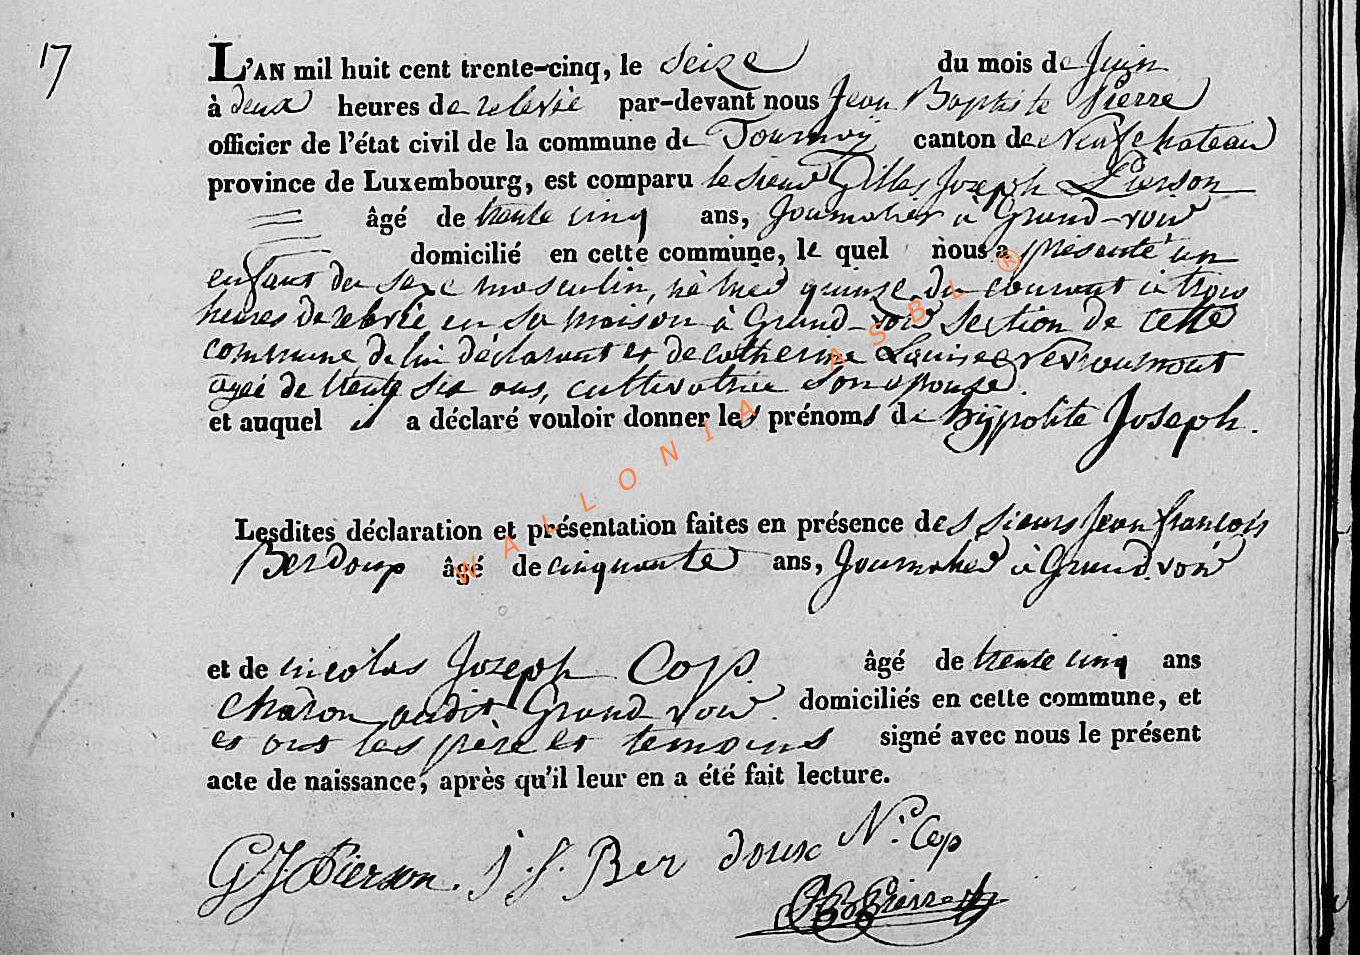 17
L'AN mil huit cent trente-cinq, le seize du mois de Juin
à deux heures de relevée par-devant nous Jean Baptiste Pierre
officier de l'état civil de la commune de Tournay canton de Neufchateau
province de Luxembourg, est comparu le sieur Gilles Joseph Pierson
âgé de trente cinq ans, Journalier à Grand-voir
domicilié en cette commune, le quel nous a présenté un
enfant du sexe masculin, né hier quinze du courant à trois
heures de relevée, en sa maison à Grand-voir section de cette
commune, de lui déclarant et de catherine Louise
agée de trente six ans, cultivatrice son épouse
et auquel il a déclaré vouloir donner les prénoms de hÿppolite Joseph.
Lesdites déclaration et présentation faites en présence des sieurs Jean françois
Berdoux âgé de cinquante ans, Journalier à Grand voir
et de nicolas Joseph Cop âgé de trente cinq ans
charon audit Grand voir domiciliés en cette commune, et
et ont les père et temoins signé avec nous le présent
acte de naissance, après qu'il leur en a été fait lecture.
G J Pierson. j. f. Ber doux N. Cop
JB Pierre
WALLONIA ASBL ®